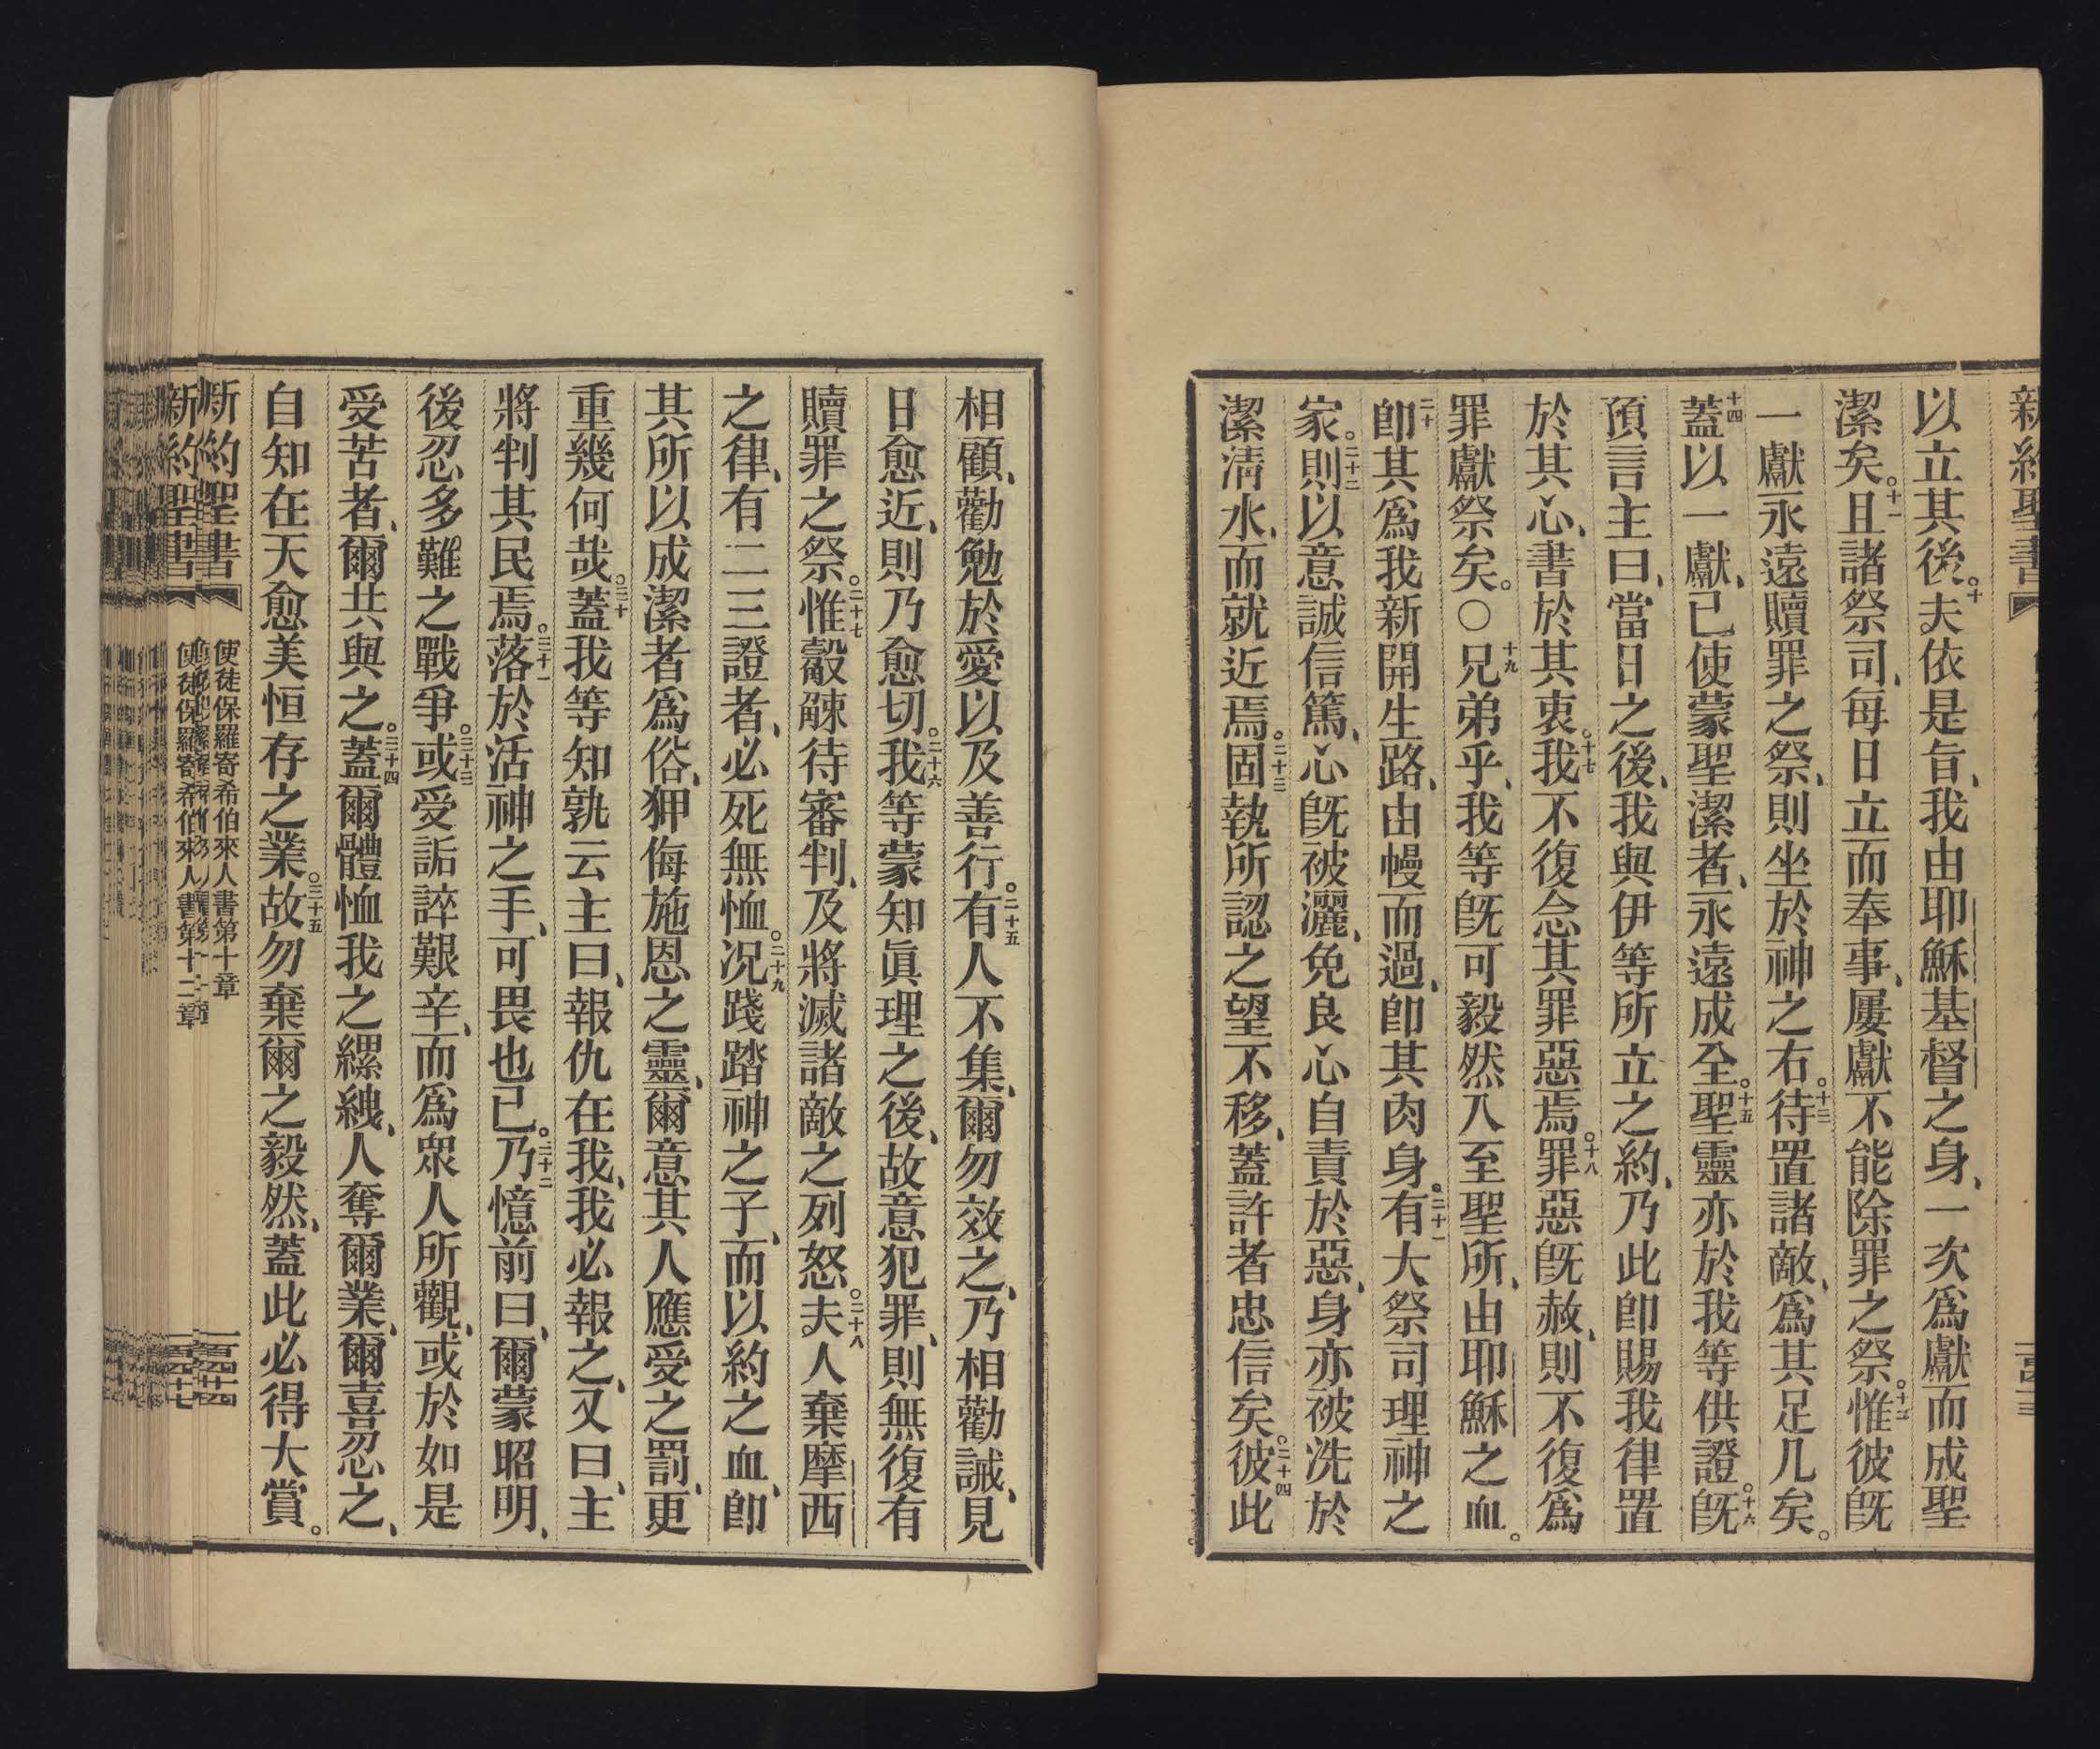 新約聖書
以立其後。十夫依是旨、我由耶穌基督之身、一次爲獻而成聖
潔矣。十一且諸祭司、每日立而奉事、屢獻不能除罪之祭。十二惟彼旣
一獻永遠贖罪之祭、則坐於神之右。十三待置諸敵、爲其足几矣。
十四蓋以一獻、已使蒙聖潔者、永遠成全。十五聖靈亦於我等供證。十六旣
預言主曰、當日之後、我與伊等所立之約、乃此卽賜我律置
於其心、書於其衷。十七我不復念其罪惡焉。十八罪惡旣赦、則不復爲
罪獻祭矣。○十九兄弟乎、我等旣可毅然入至聖所、由耶穌之血。
二十卽其爲我新開生路、由幔而過、卽其肉身。二十一有大祭司理神之
家。二十二則以意誠信篤、心旣被灑、免良心自責於惡、身亦被洗於
潔淸水、而就近焉。二十三固執所認之望不移、蓋許者忠信矣。二十四彼此
相顧、勸勉於愛以及善行。二十五有人不集、爾勿效之、乃相勸誡、見
日愈近、則乃愈切。二十六我等蒙知眞理之後、故意犯罪、則無復有
贖罪之祭。二十七惟觳觫待審判、及將滅諸敵之列怒。二十八夫人棄摩西
之律、有二三證者、必死無恤。二十九况踐踏神之子、而以約之血、卽
其所以成潔者爲俗、狎侮施恩之靈、爾意其人應受之罰、更
重幾何哉。三十蓋我等知孰云主曰、報仇在我、我必報之、又曰、主
將判其民焉。三十一落於活神之手、可畏也已。三十二乃憶前日、爾蒙昭明、
後忍多難之戰爭。三十三或受詬誶艱辛、而爲衆人所觀、或於如是
受苦者、爾共與之。三十四蓋爾體恤我之縲絏、人奪爾業、爾喜忍之、
自知在天愈美恒存之業。三十五故勿棄爾之毅然、蓋此必得大賞。
新約聖書 使徒保羅寄希伯來人書第十章 一百四十四
新約聖書 使徒保羅寄希伯來人書第十二章 一百四十七